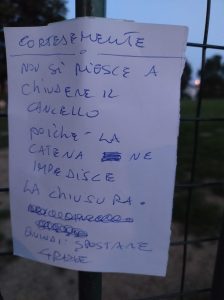 CORTESEMENTE
NON SI RIESCE A
CHIUDERE IL
CANCELLO
POICHE' LA
CATENA NE
IMPEDISCE
LA CHIUSURA.
QUINDI: SPOSTARE
GRAZIE